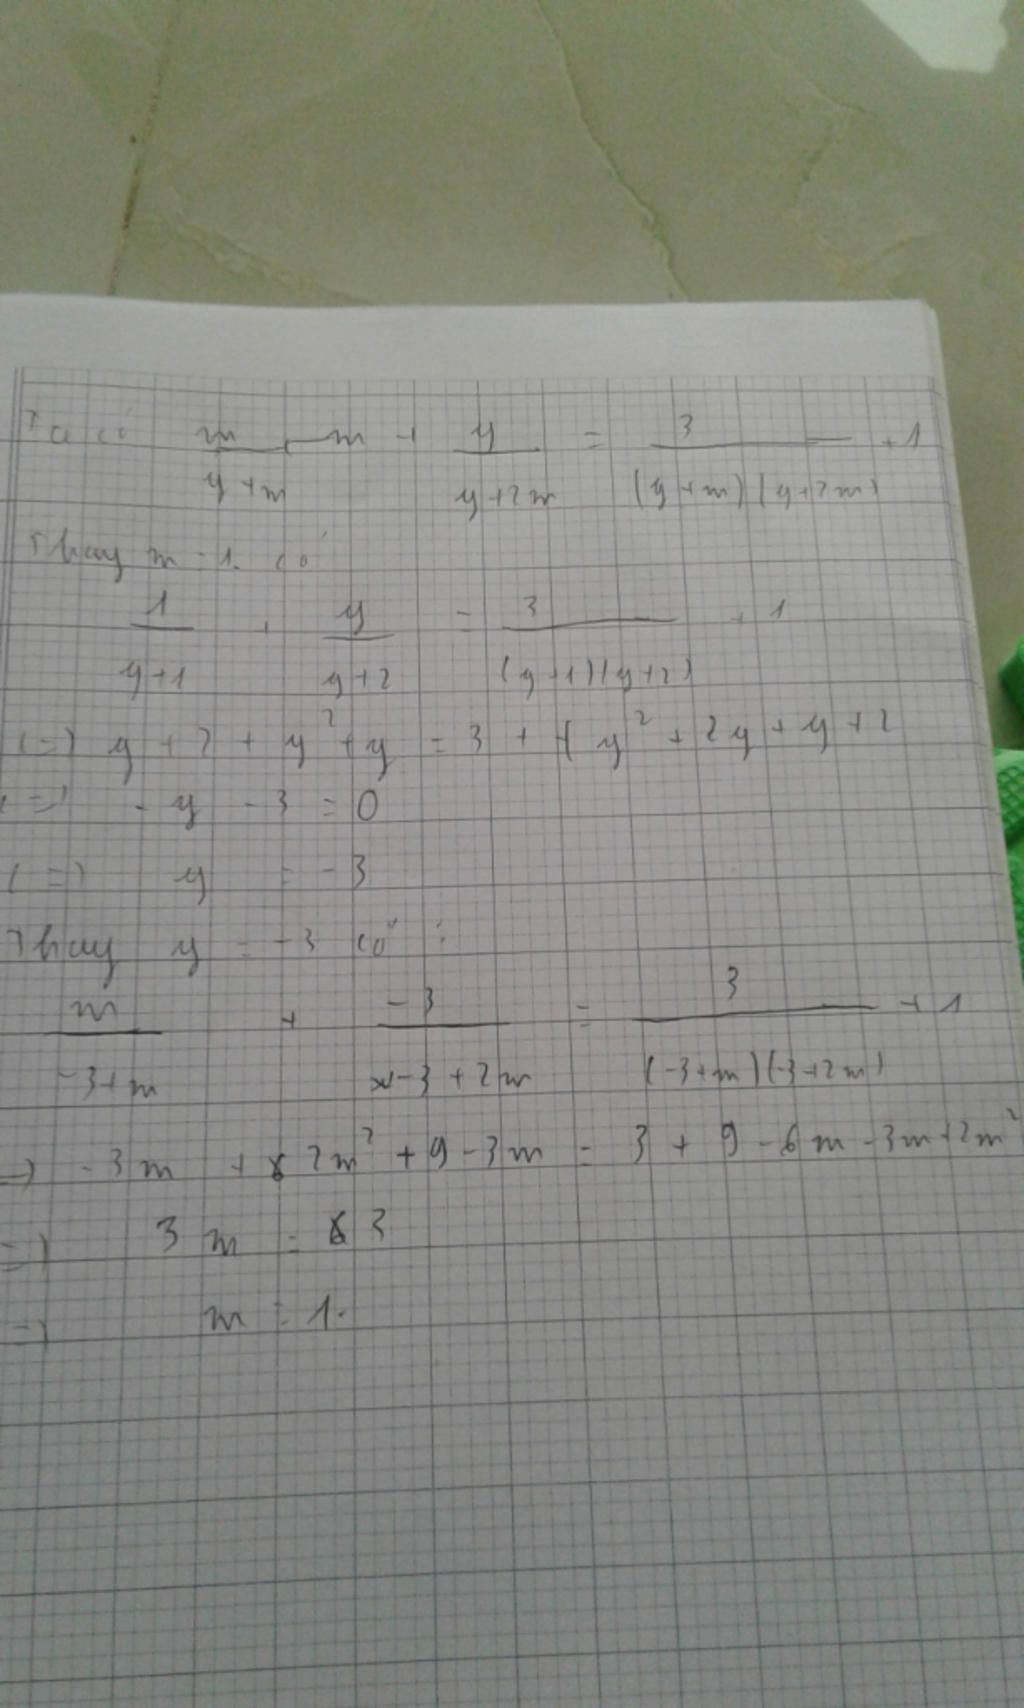 Ta có m/(y+m) + y/(y+2m) = 3/((y+m)(y+2m)) + 1
Thay m = 1. có
1/(y+1) + y/(y+2) = 3/((y+1)(y+2)) + 1
(=) y + 2 + y² + y = 3 + y² + 2y + y + 2
(=) - y - 3 = 0
(=) y = -3
Thay y = -3 có :
m/(-3+m) + -3/(-3+2m) = 3/((-3+m)(-3+2m)) + 1
=) -3m + 2m² + 9 - 3m = 3 + 9 - 6m - 3m + 2m²
=) 3m = 3
=) m = 1.